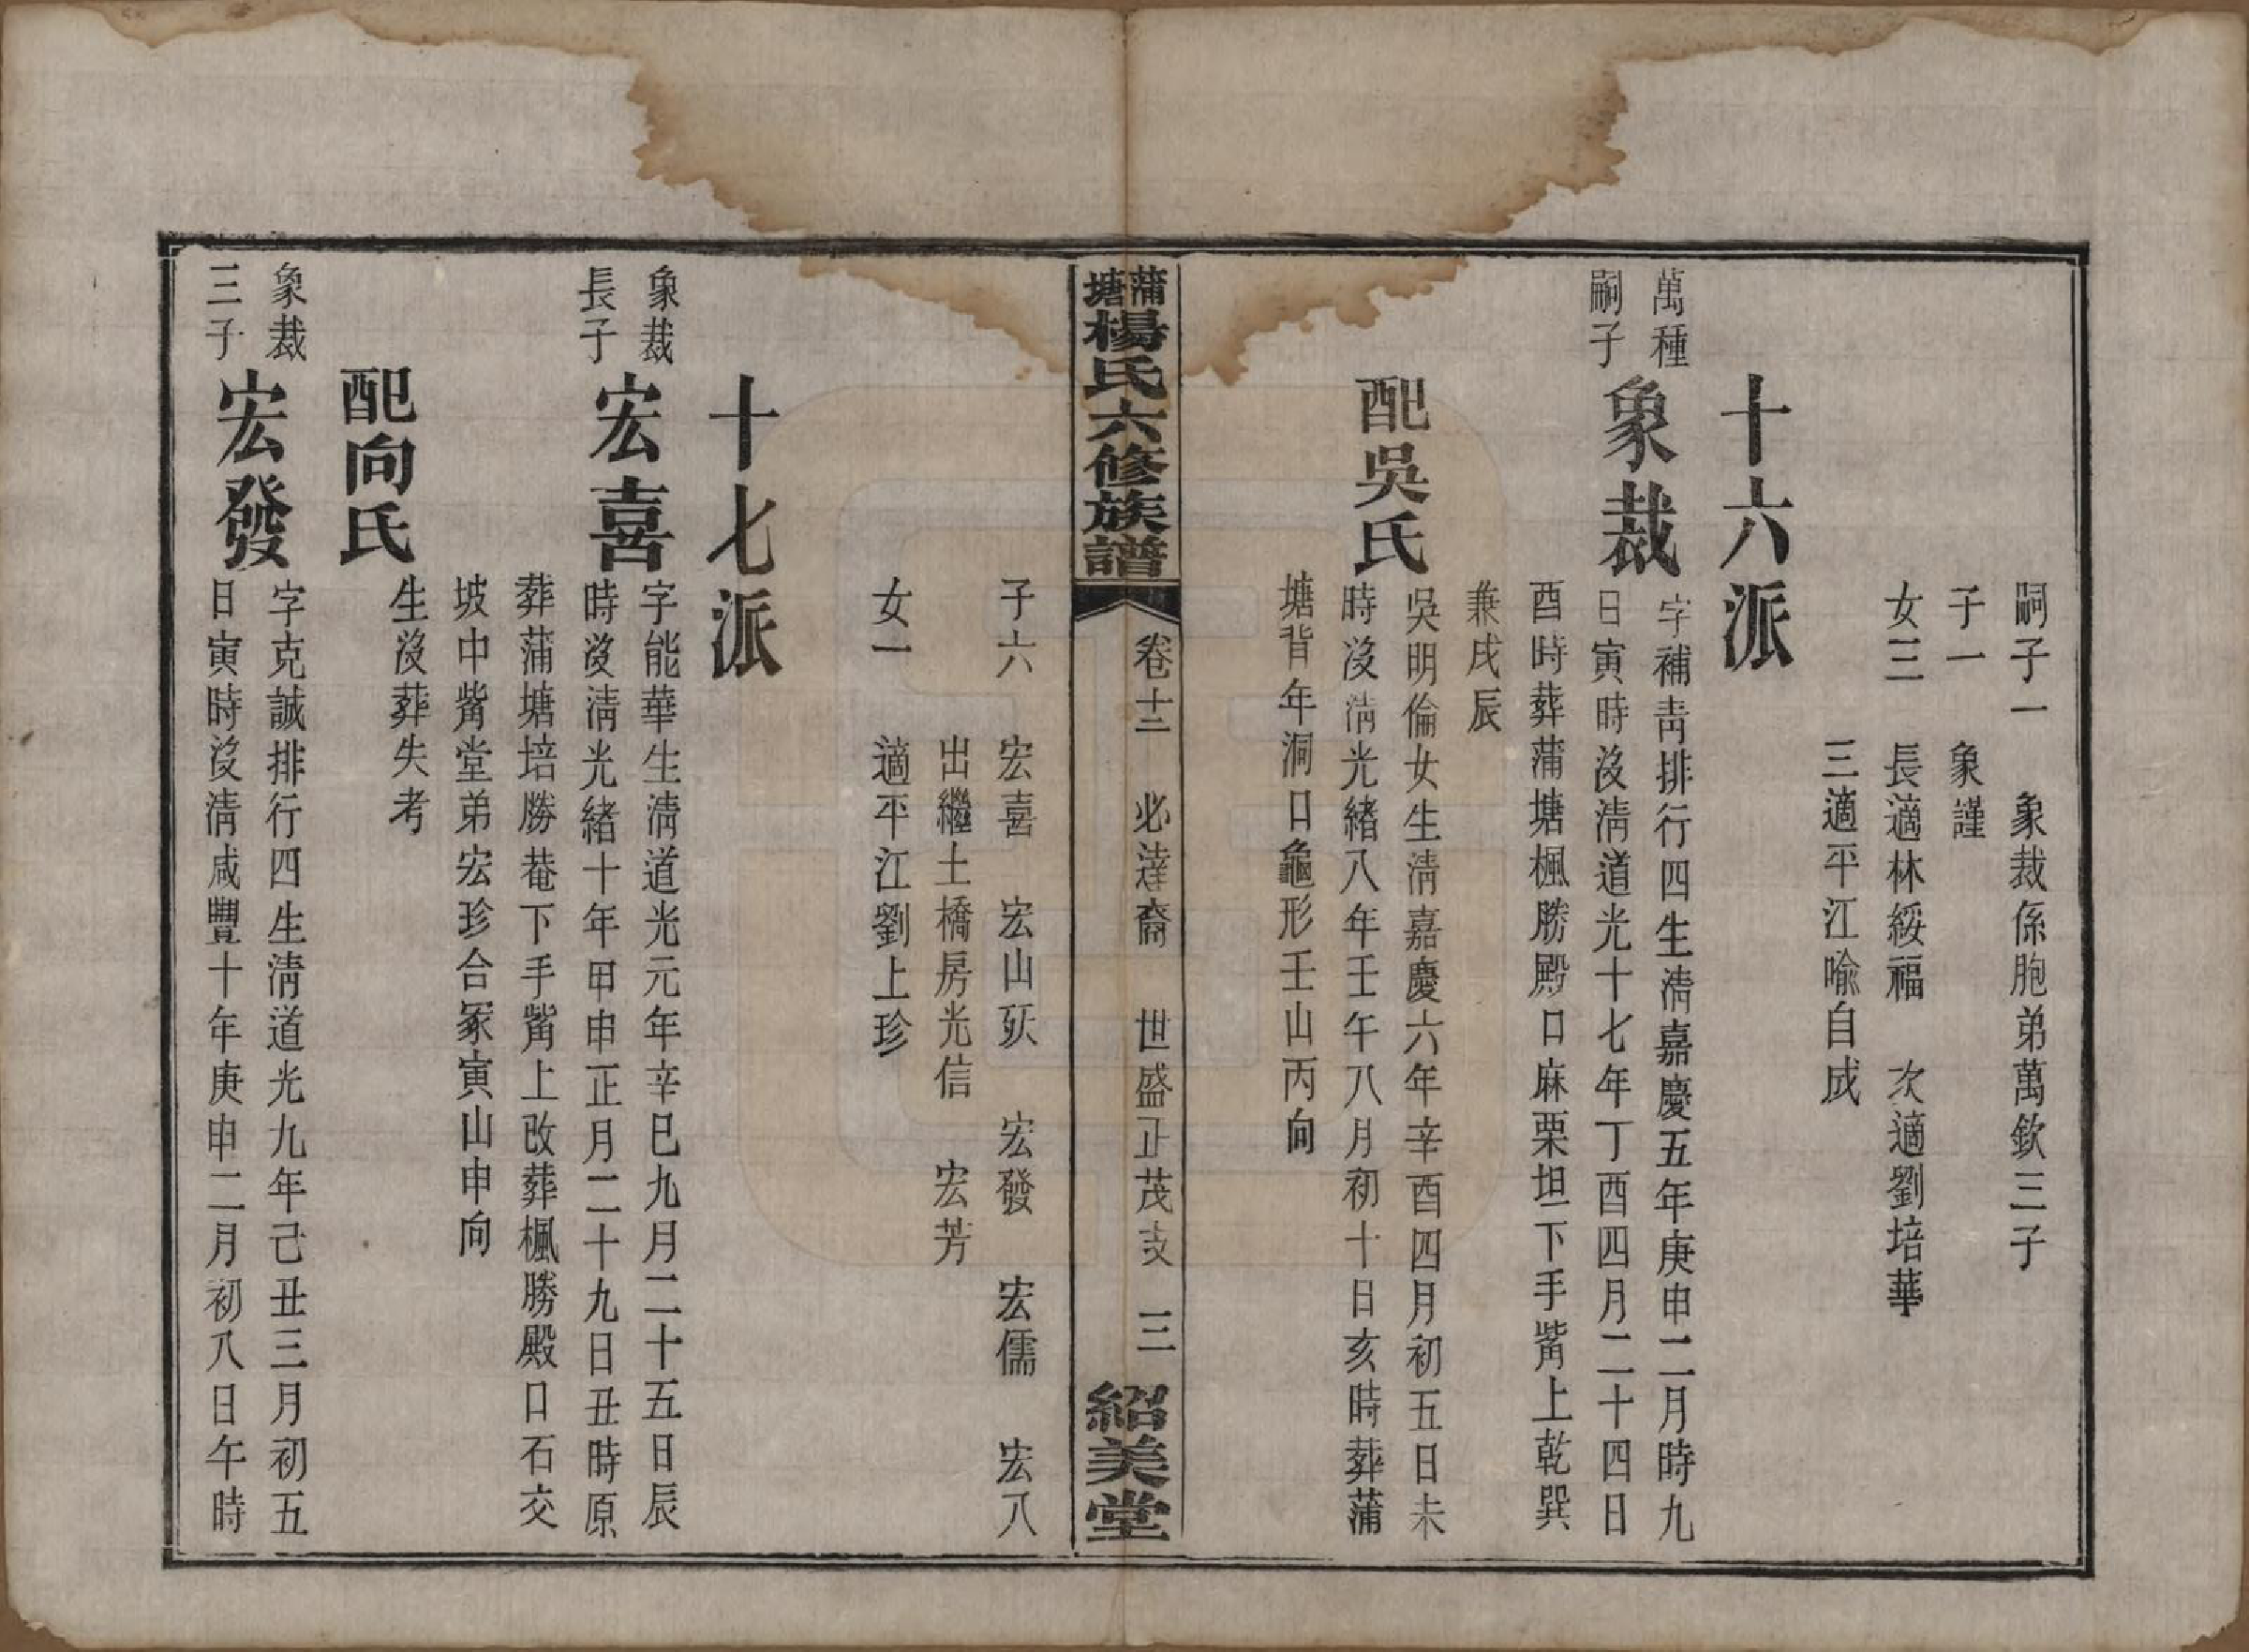 嗣子一　象裁係胞弟萬欽三子
子一　象謹
女三　長適林綏福　次適劉培華
三適平江喩自成
十六派
萬種嗣子　象裁　字補靑排行四生淸嘉慶五年庚申二月時九
日寅時沒淸道光十七年丁酉四月二十四日
酉時葬蒲塘楓勝殿口麻栗坦下手觜上乾巽
兼戌辰
配吳氏　吳明倫女生淸嘉慶六年辛酉四月初五日未
時沒淸光緖八年壬午八月初十日亥時葬蒲
塘背年洞口龜形壬山丙向
蒲塘楊氏六修族譜　卷十二　必達裔　世盛正茂支　三　紹美堂
子六　宏喜　宏山殀　宏發　宏儒　宏八
出繼土橋房光信　宏芳
女一　適平江劉上珍
十七派
象裁長子　宏喜　字能華生淸道光元年辛巳九月二十五日辰
時沒淸光緖十年甲申正月二十九日丑時原
葬蒲塘培勝菴下手觜上改葬楓勝殿口石交
坡中觜堂弟宏珍合冢寅山申向
配向氏　生沒葬失考
象裁三子　宏發　字克誠排行四生淸道光九年己丑三月初五
日寅時沒淸咸豐十年庚申二月初八日午時